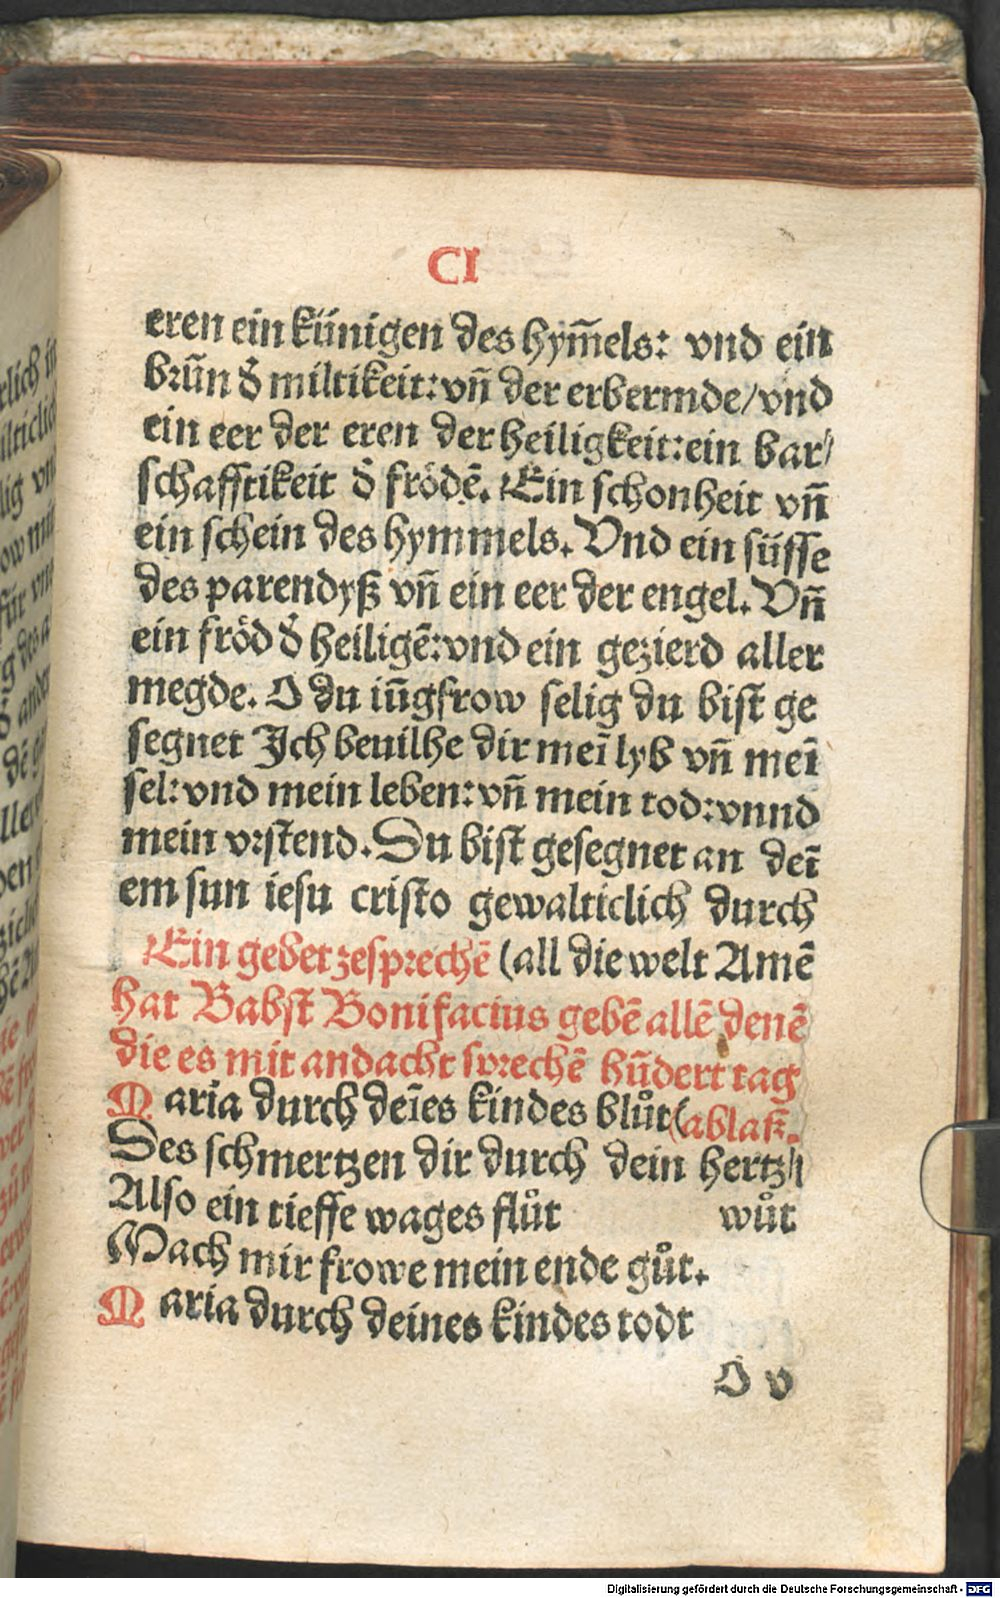 CI
eren ein künigen des hym̄els: vnd ein
brūn d̄ miltikeit: vn̄ der erbermde/vnd
ein eer der eren der heiligkeit: ein bar⸗
schafftikeit d̄ frödē. Ein schonheit vn̄
ein schein des hymmels. Vnd ein süsse
des parendyß vn̄ ein eer der engel. Vn̄
ein fröd d̄ heiligē: vnd ein gezierd aller
megde. O du iūgfrow selig du bist ge
segnet Ich beuilhe dir meī lyb vn̄ meī
sel: vnd mein leben: vn̄ mein tod: vnnd
mein vrstend. Du bist gesegnet an deī
em sun iesu cristo gewalticlich durch
Ein gebet zesprechē (all die welt Amē
hat Babst Bonifacius gebē allē denē
die es mit andacht sprechē hūdert tag
Maria durch deīes kindes blůt (ablaß.
Des schmertzen dir durch dein hertz⸗
Also ein tieffe wages flůt wůt
Mach mir frowe mein ende gůt.
Maria durch deines kindes todt
O v
Digitalisierung gefördert durch die Deutsche Forschungsgemeinschaft - DFG